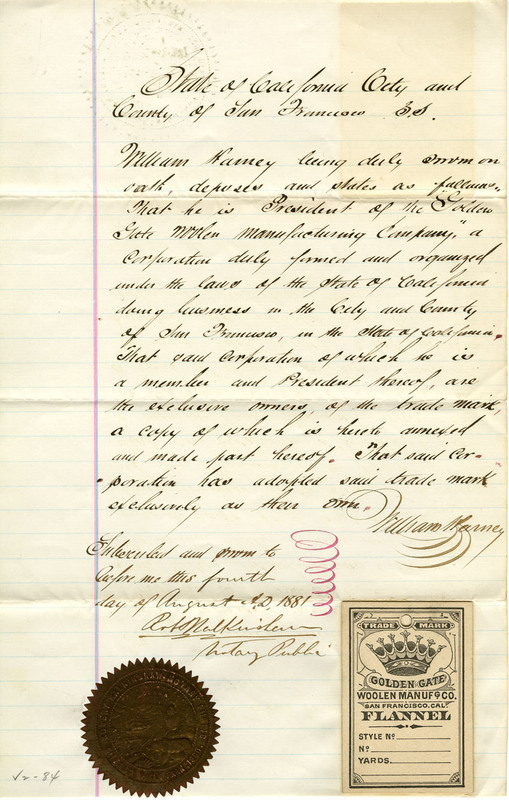 State of California City and
County of San Francisco S.S.
William Harney being duly sworn on
oath, deposes and states as follows.
That he is President of the "Golden
Gate Woolen Manufacturing Company," a
Corporation duly formed and organized
under the laws of the State of California
doing business in the City and County
of San Francisco, in the State of California.
That said Corporation of which he is
a member and President thereof, are
the exclusive owners, of the trade mark,
a copy of which is hereto annexed
and made part hereof. That said Cor-
-poration has adopted said trade mark
exclusively as their own.
William Harney
Subscribed and sworn to
before me this fourth
day of August A.D. 1881
Notary Public
TRADE MARK
GOLDEN GATE
WOOLEN MANUF'G CO.
SAN FRANCISCO, CAL.
FLANNEL
STYLE No
No
YARDS
v2-84